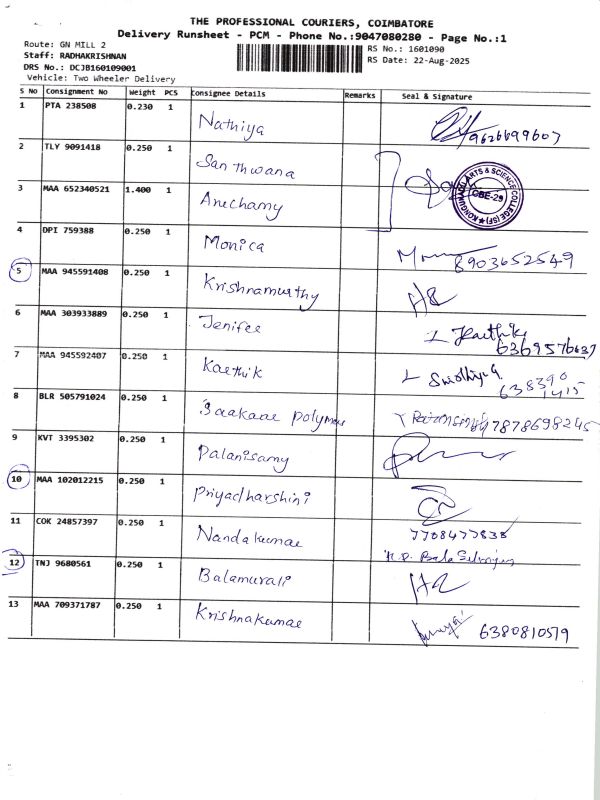 THE PROFESSIONAL COURIERS, COIMBATORE
Delivery Runsheet - PCM - Phone No.:9047080280 - Page No.:1
Route: GN MILL 2
RS No.: 1601090
Staff: RADHAKRISHNAN
RS Date: 22-Aug-2025
DRS No.: DCJB160109001
Vehicle: Two Wheeler Delivery
S No Consignment No Weight PCS Consignee Details Remarks Seal & Signature
1 PTA 238508 0.230 1 Nathiya 9626699607
2 TLY 9091418 0.250 1 Santhwana
3 MAA 652340521 1.400 1 Aruchamy
KONGUNADU ARTS & SCIENCE COLLEGE (SF) CBE-29
4 DPI 759388 0.250 1 Monica 8903652549
5 MAA 945591408 0.250 1 Krishnamurthy
6 MAA 303933889 0.250 1 Jenifer Karthik 6369576637
7 MAA 945592407 0.250 1 Karthik 638390
1415
8 BLR 505791024 0.250 1 polymers 7878698245
9 KVT 3395302 0.250 1 Palanisamy
10 MAA 102012215 0.250 1 Priyadharshini
11 COK 24857397 0.250 1 Nandakumar 7708477838
12 TNJ 9680561 0.250 1 Balamurali
13 MAA 709371787 0.250 1 Krishnakumar 6380810579